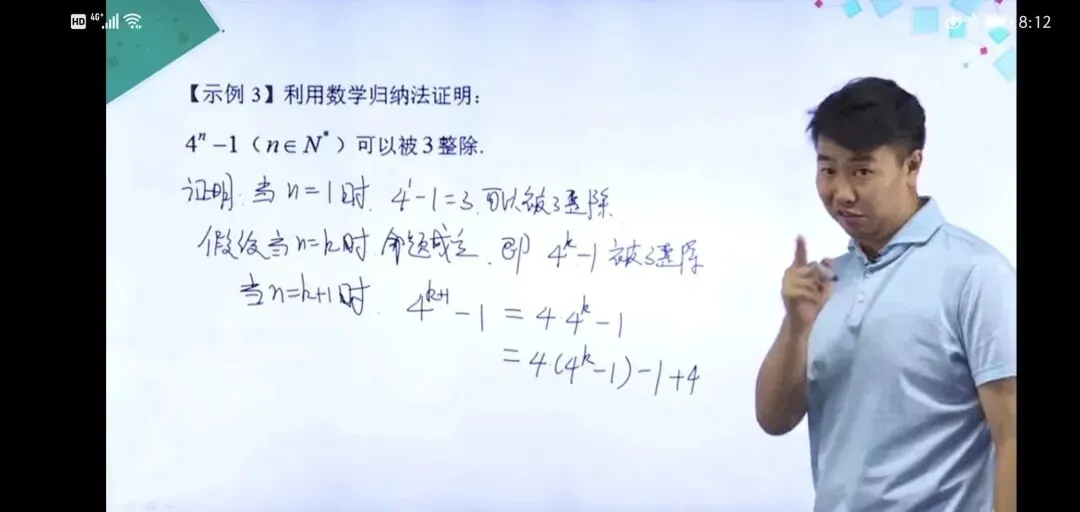 HD 4G+ 8:12
【示例 3】利用数学归纳法证明：
4ⁿ －1（n∈N*）可以被3整除.
证明：当 n=1时. 4¹-1=3. 可以被3整除
假设当n=k时.命题成立. 即 4ᵏ-1 被3整除
当n=k+1时. 4ᵏ⁺¹-1 = 4·4ᵏ-1
= 4·(4ᵏ-1)-1+4